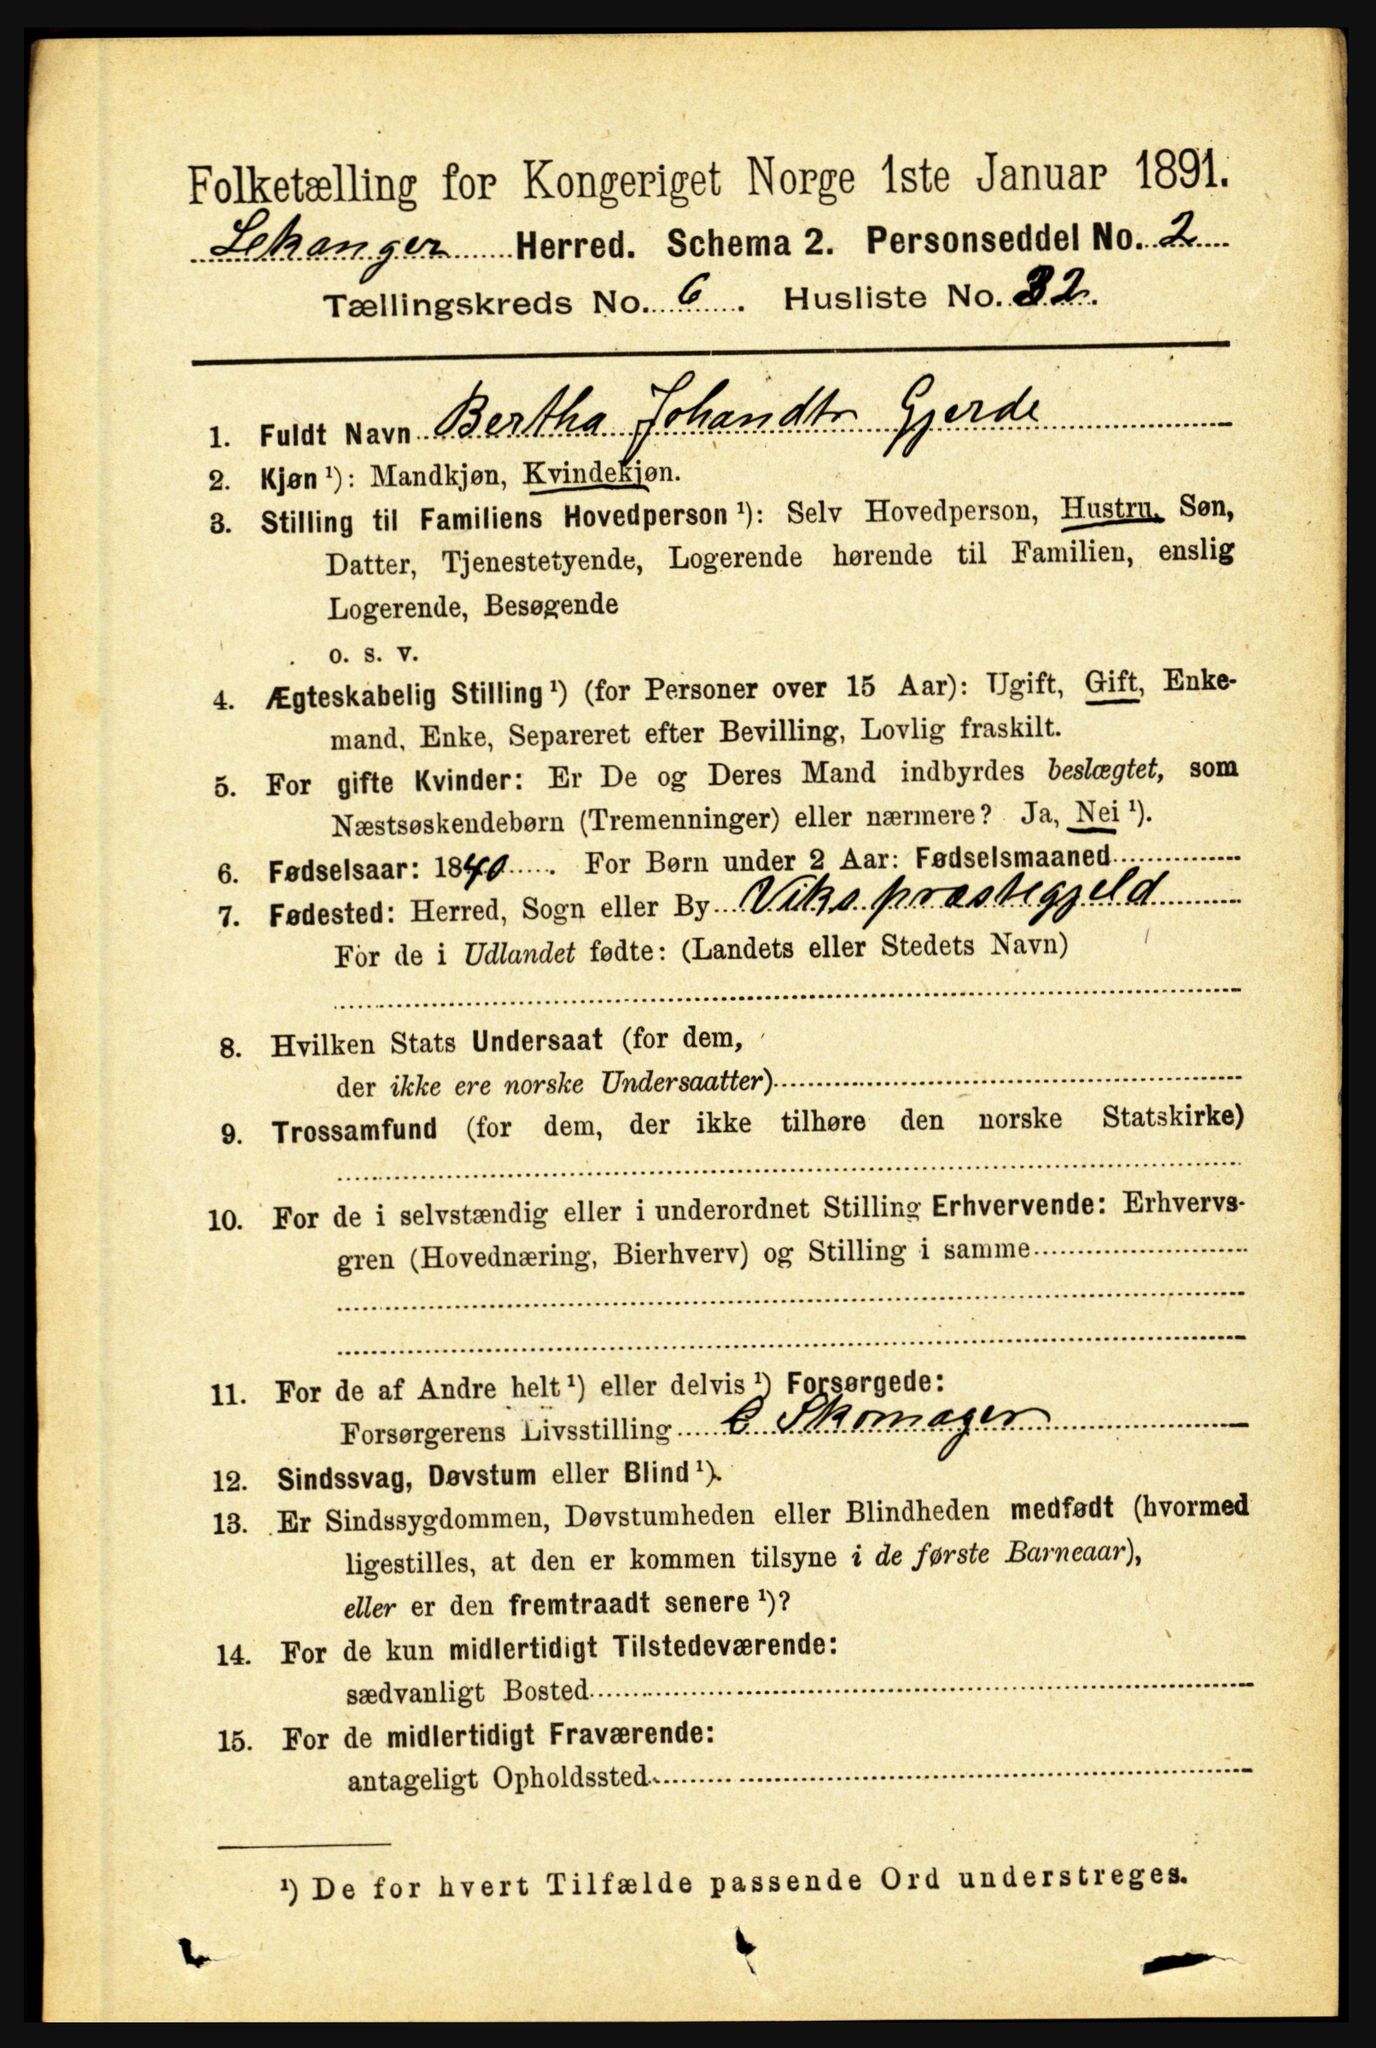 Folketælling for Kongeriget Norge 1ste Januar 1891.
Lekanger Herred. Schema 2. Personseddel No. 2
Tællingskreds No. 6. Husliste No. 32.
1. Fuldt Navn Bertha Johandtr Gjerde
2. Kjøn ¹): Mandkjøn, Kvindekjøn.
3. Stilling til Familiens Hovedperson ¹): Selv Hovedperson, Hustru, Søn,
Datter, Tjenestetyende, Logerende hørende til Familien, enslig
Logerende, Besøgende
o. s. v.
4. Ægteskabelig Stilling ¹) (for Personer over 15 Aar): Ugift, Gift, Enke-
mand, Enke, Separeret efter Bevilling, Lovlig fraskilt.
5. For gifte Kvinder: Er De og Deres Mand indbyrdes beslægtet, som
Næstsøskendebørn (Tremenninger) eller nærmere? Ja, Nei ¹).
6. Fødselsaar: 1840. For Børn under 2 Aar: Fødselsmaaned
7. Fødested: Herred, Sogn eller By Viks præstegjeld
For de i Udlandet fødte: (Landets eller Stedets Navn)
8. Hvilken Stats Undersaat (for dem,
der ikke ere norske Undersaatter)
9. Trossamfund (for dem, der ikke tilhøre den norske Statskirke)
10. For de i selvstændig eller i underordnet Stilling Erhvervende: Erhvervs-
gren (Hovednæring, Bierhverv) og Stilling i samme
11. For de af Andre helt ¹) eller delvis ¹) Forsørgede:
Forsørgerens Livsstilling Skomager
12. Sindssvag, Døvstum eller Blind ¹).
13. Er Sindssygdommen, Døvstumheden eller Blindheden medfødt (hvormed
ligestilles, at den er kommen tilsyne i de første Barneaar),
eller er den fremtraadt senere ¹)?
14. For de kun midlertidigt Tilstedeværende:
sædvanligt Bosted
15. For de midlertidigt Fraværende:
antageligt Opholdssted
¹) De for hvert Tilfælde passende Ord understreges.